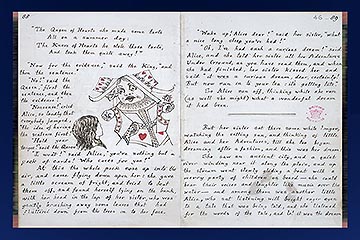 88
"The Queen of Hearts she made some tarts
All on a summer day:
The Knave of Hearts he stole those tarts,
And took them quite away!"
"Now for the evidence," said the King, "and
then the sentence."
"No!" said the
Queen, "first the
sentence, and then
the evidence!"
"Nonsense!" cried
Alice, so loudly that
everybody jumped,
"the idea of having
the sentence first!"
"Hold your
tongue!" said the Queen.
"I won't!" said Alice, "you're nothing but a
pack of cards! Who cares for you?"
At this the whole pack rose up into the
air, and came flying down upon her: she gave
a little scream of fright, and tried to beat
them off, and found herself lying on the bank,
with her head in the lap of her sister, who was
gently brushing away some leaves that had
fluttered down from the trees on to her face.
89
"Wake up! Alice dear!" said her sister, "what
a nice long sleep you've had!"
"Oh, I've had such a curious dream!" said
Alice, and she told her sister all her Adventures
Under Ground, as you have read them, and when
she had finished, her sister kissed her and
said "it was a curious dream, dear, certainly!
But now run in to your tea: it's getting late."
So Alice ran off, thinking while she ran
(as well she might) what a wonderful dream
it had been.
But her sister sat there some while longer,
watching the setting sun, and thinking of little
Alice and her Adventures, till she too began
dreaming after a fashion, and this was her dream:
She saw an ancient city, and a quiet
river winding near it along the plain, and up
the stream went slowly gliding a boat with a
merry party of children on board— she could
hear their voices and laughter like music over the
water— and among them was another little
Alice, who sat listening with bright eager eyes
to a tale that was being told, and she listened
for the words of the tale, and lo! it was the dream